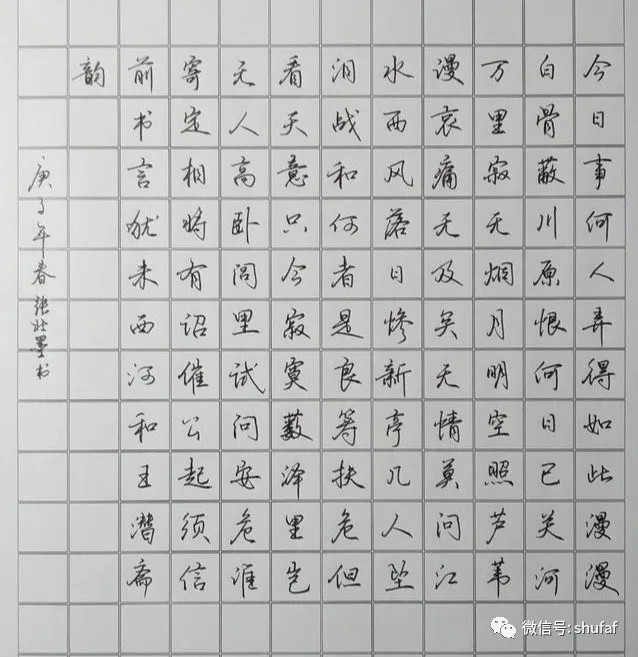 今日事何人弄得如此漫漫
白骨蔽川原恨何日已关河
万里寂无烟月明空照芦苇
谩哀痛无及矣无情莫问江
水西风落日惨新亭几人坠
泪战和何者是良筹扶危但
看天意只今寂寞薮泽里岂
无人高卧闾里试问安危谁
寄定相将有诏催公起须信
前书言犹未西河和王潜斋
韵
庚子年春张壮墨书
微信号: shufaf